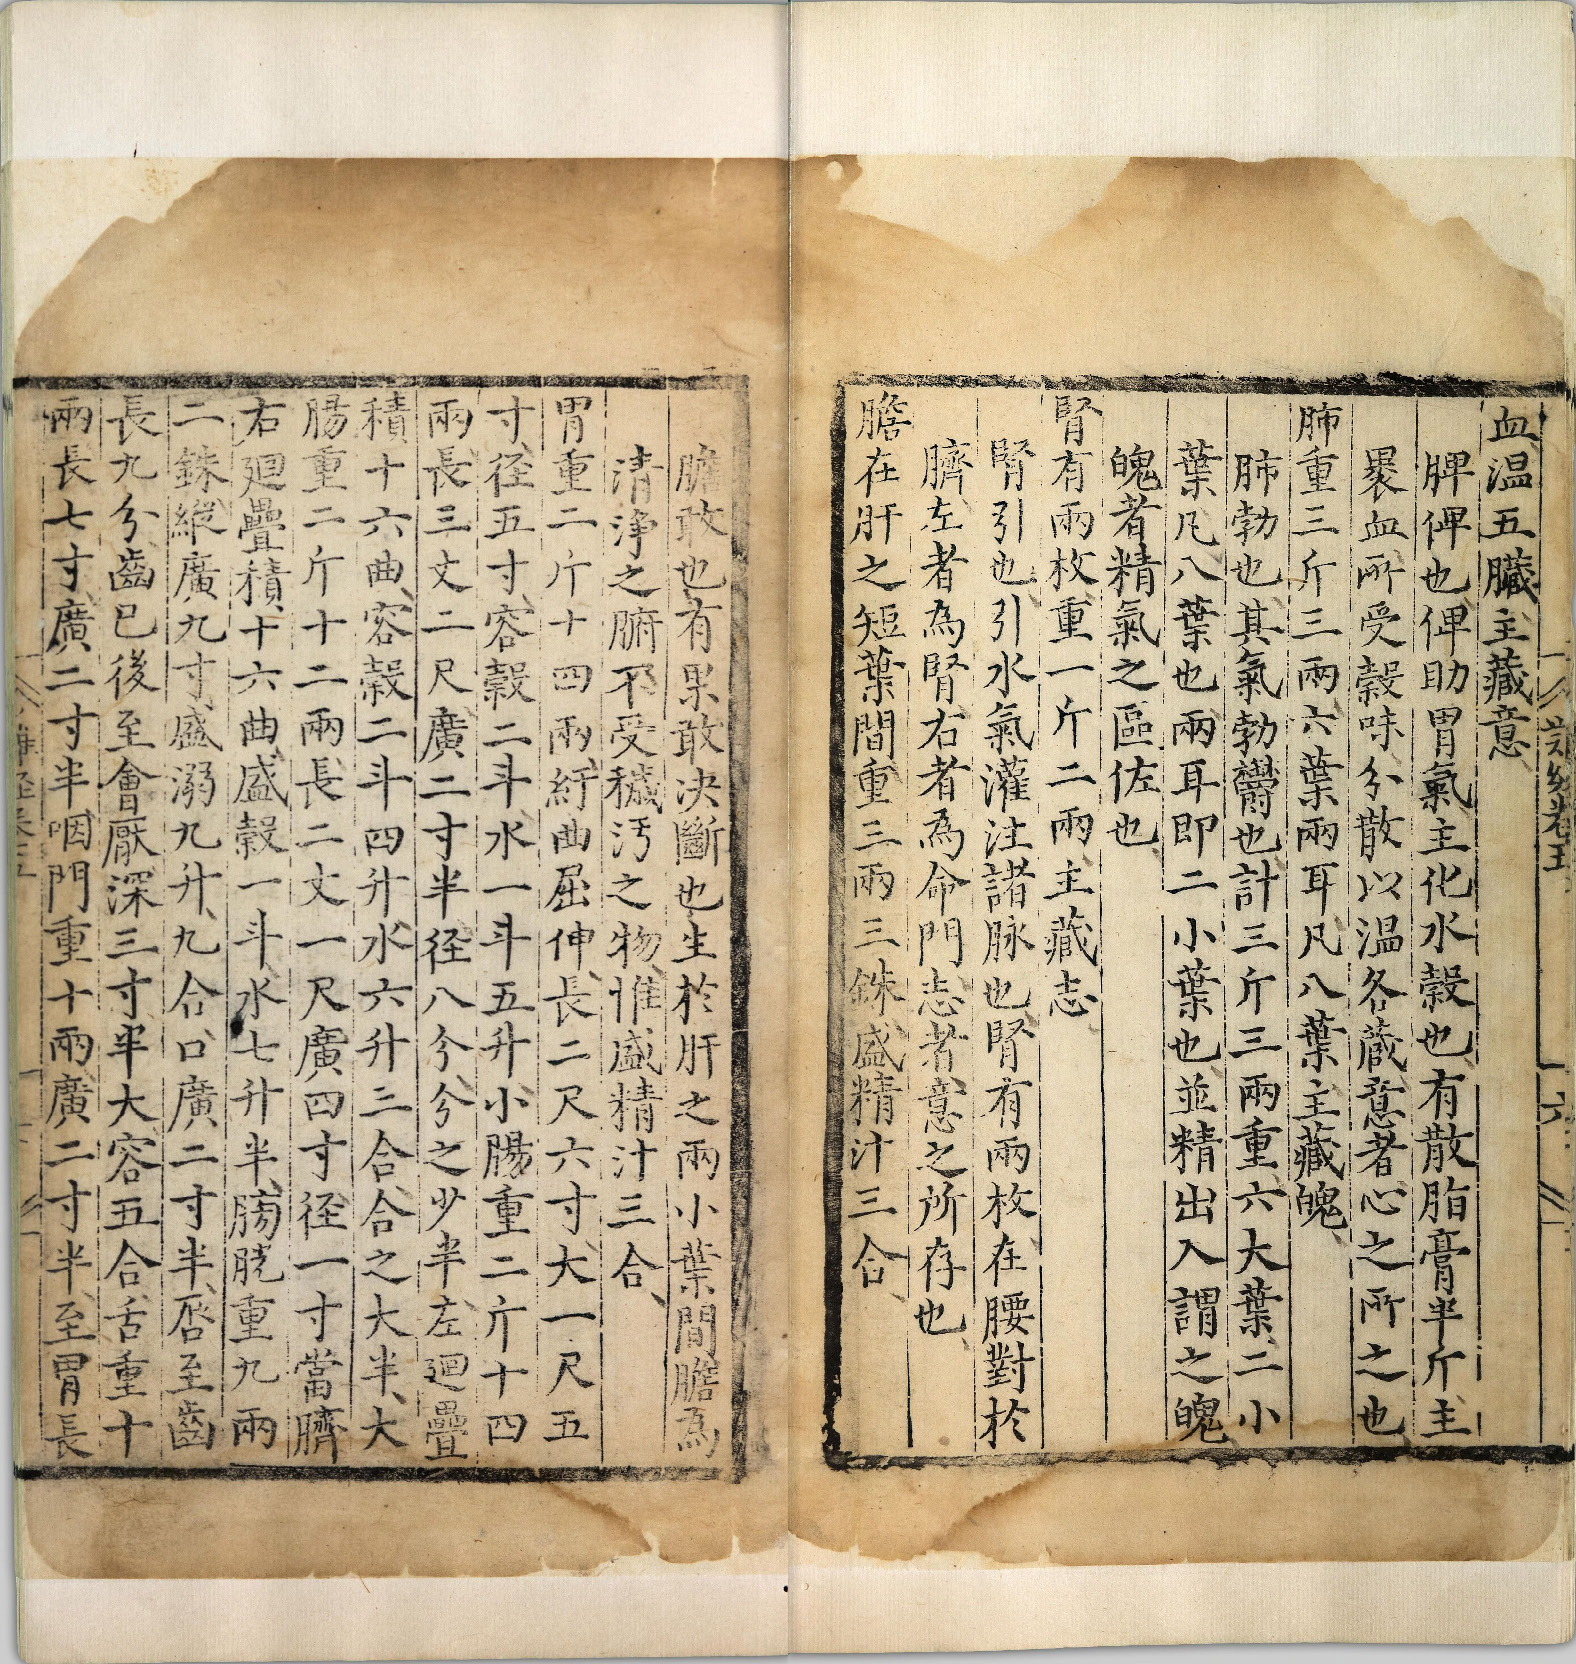 血温五臓主藏意
脾俾也俾助胃氣主化水穀也有散脂膏半斤主
褁血所受穀味分散以温各蔵意者心之所之也
肺重三斤三兩六葉兩耳凡八葉主藏魄
肺勃也其氣勃欝也計三斤三兩重六大葉二小
葉凡八葉也兩耳即二小葉也並精出入謂之魄
魄者精氣之區佐也
腎有兩枚重一斤二兩主藏志
腎引也引水氣灌注諸脉也腎有兩枚在腰對於
臍左者為腎右者為命門志者意之所存也
膽在肝之短葉間重三兩三銖盛精汁三合
膽敢也有果敢决斷也生於肝之兩小葉間膽為
清浄之腑不受穢汚之物惟盛精汁三合
胃重二斤十四兩紆曲屈伸長二尺六寸大一尺五
寸径五寸容穀二斗水一斗五升小腸重二斤十四
兩長三丈二尺廣二寸半径八分分之少半左廻疊
積十六曲容穀二斗四升水六升三合合之大半大
腸重二斤十二兩長二丈一尺廣四寸径一寸當臍
右廻疊積十六曲盛穀一斗水七升半膀胱重九兩
二銖縱廣九寸盛溺九升九合口廣二寸半唇至齒
長九分齒已後至會厭深三寸半大容五合舌重十
兩長七寸廣二寸半咽門重十兩廣二寸半至胃長